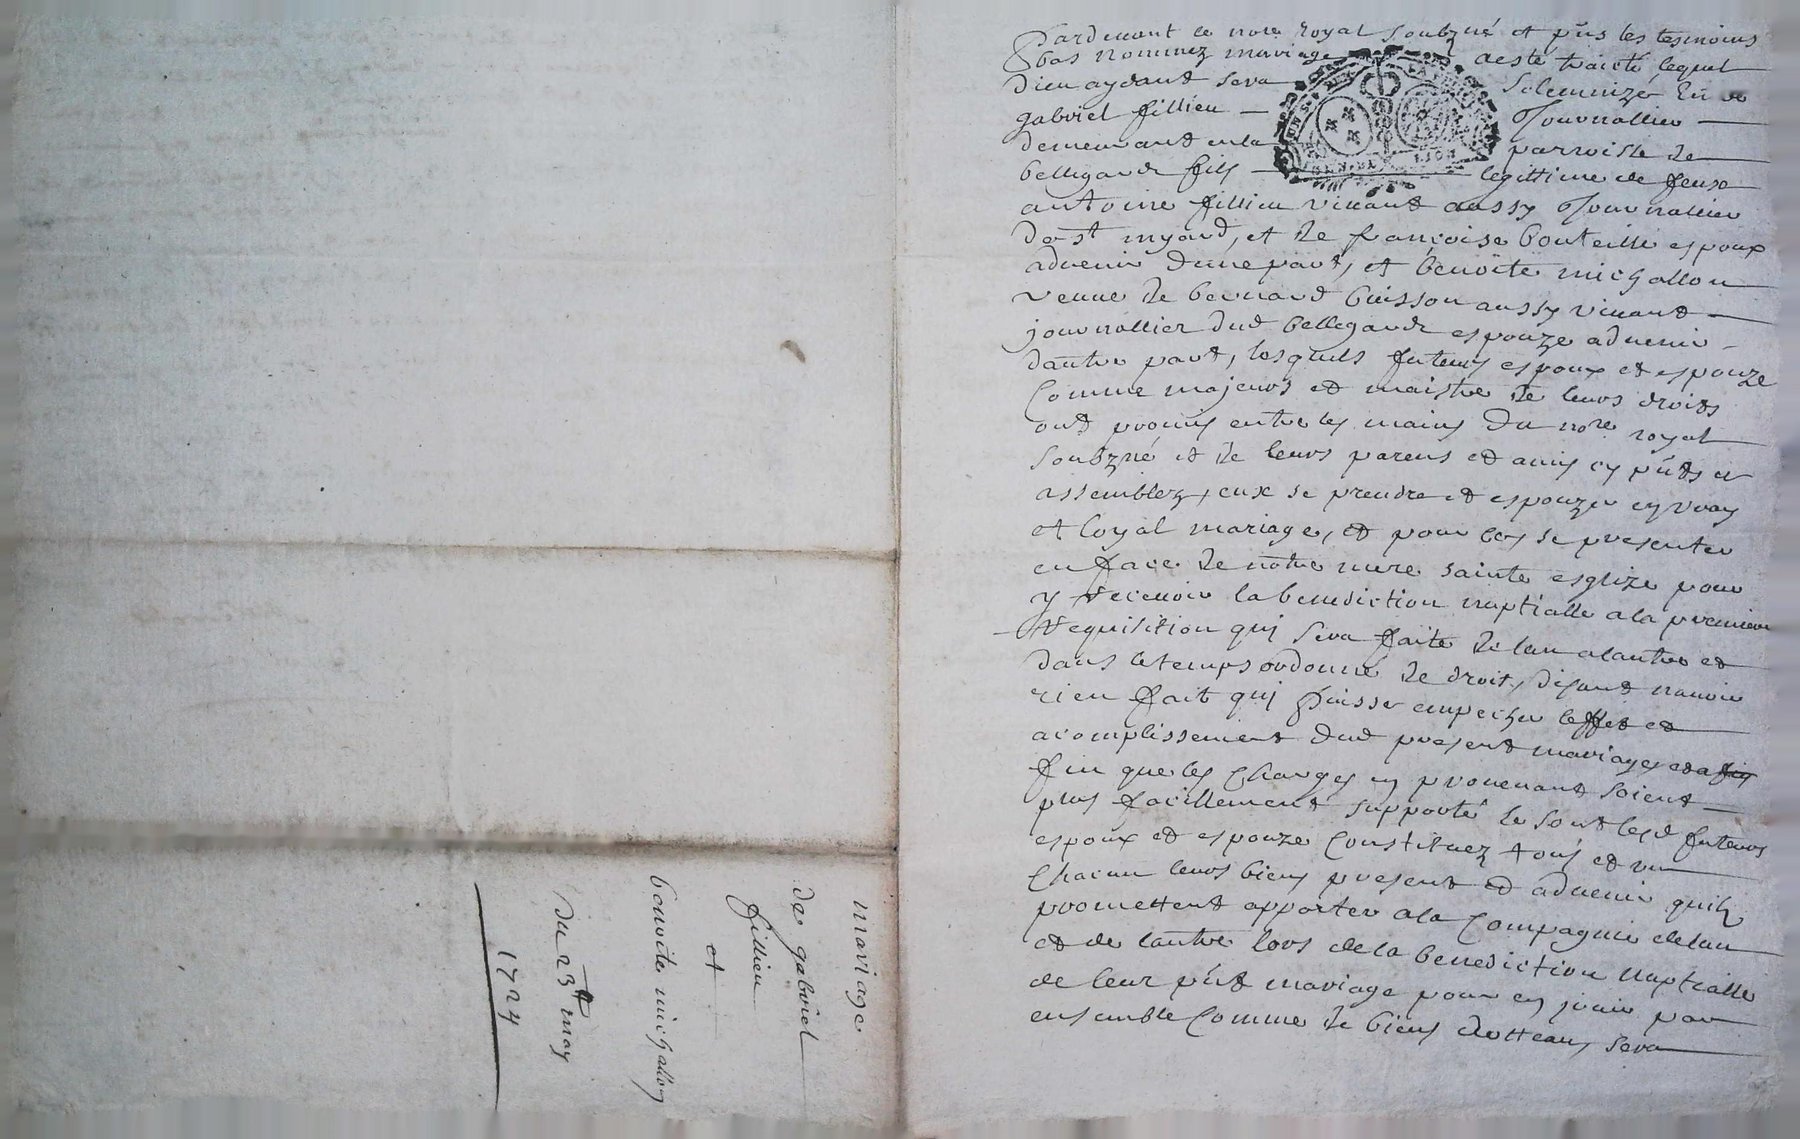 Pardevant le no.re royal soubz.né et pñs les tesmoins
bas nommez mariage a esté traicté lequel
Dieu aydant sera solemnizé Entre
gabriel fillieu Journallier
demeurant en la parroisse de
bellegarde fils legittime de feux
antoine fillieu vivant aussy Journallier
de st myard, et de françoise bouteille espoux
advenir d'une part, et benoite michallon
veuve de bernard buisson aussy vivant
journallier dud bellegarde espouze advenir
dautre part, lesquels futeurs espoux et espouze
Comme majeurs et maistre de leurs droits
ont promis entre les mains du no.re royal
soubz.né et de leurs parens et amis cy pñts et
assemblez, eux se prendre et espouzer en vray
et loyal mariage, et pour ce se presenter
en face de notre mere sainte esglize pour
y recevoir la benediction nuptialle a la premiere
requisition qui sera faite de lun a lautre et
dans le temps ordonné de droit, disant navoir
rien fait qui puisse empecher leffet et
acomplissement dud present mariage et a
fin que les charges en provenant soient
plus facillement supporté se sont lesd futeurs
espoux et espouze Constituez tous et un
Chacun leurs biens present et advenir quils
promettent apporter a la Compagnie de lun
et de lautre lors de la benediction nuptialle
de leur pñt mariage pour en jouir par
ensemble Comme de biens dotteaux sera
mariage
de gabriel
fillieu
et
benoite michallon
du 23 may
1724